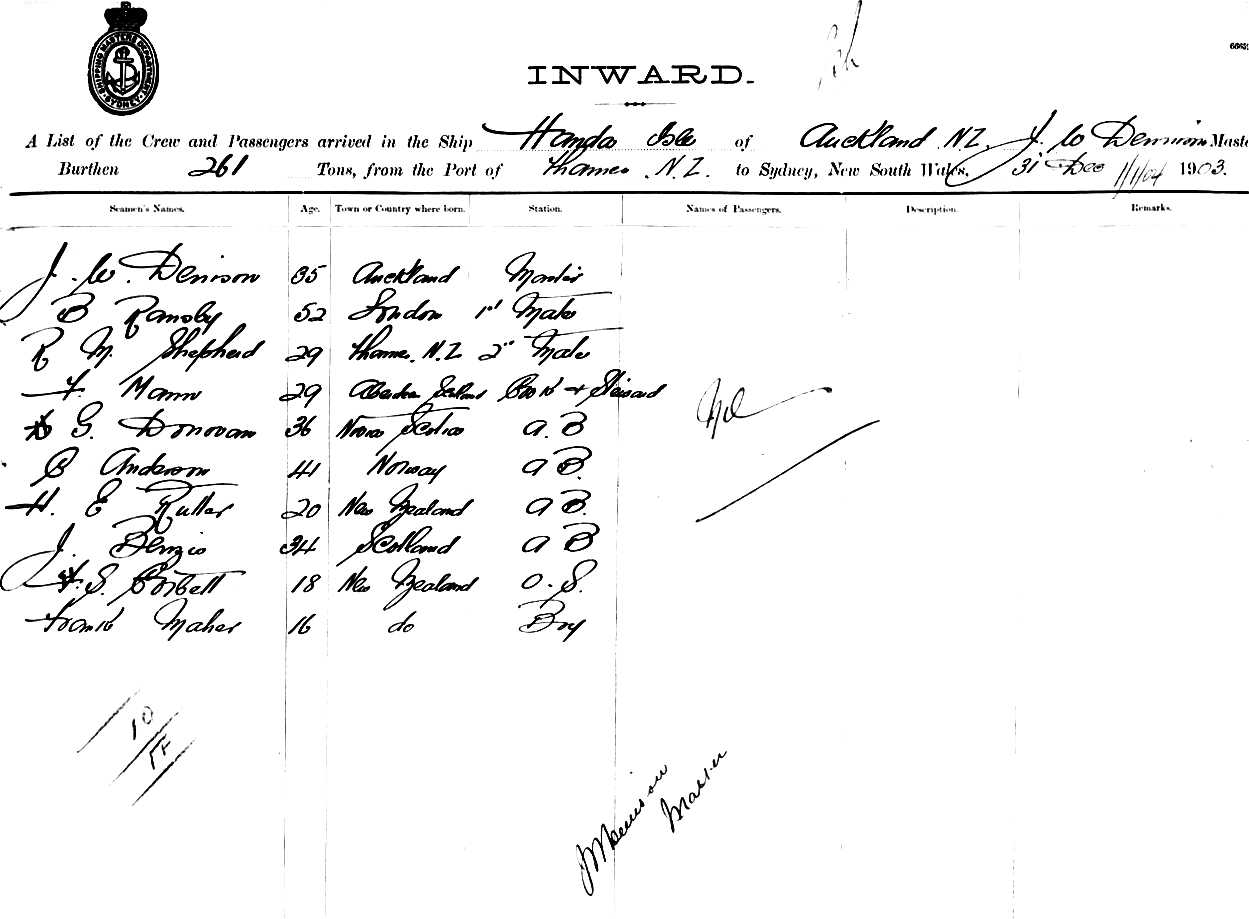 SHIPPING MASTERS DEPARTMENT SYDNEY
INWARD.
A List of the Crew and Passengers arrived in the Ship Handa Isle of Auckland N.Z. J. W Denison Maste
Burthen 261 Tons, from the Port of Thames N.Z. to Sydney, New South Wales, 31st Dec 1/1/04 1903.
Seamen's Names. Age. Town or Country where born. Station. Names of Passengers. Description. Remarks.
J. W. Denison 35 Auckland Master
B Ransby 52 London 1st Mate
R M. Shepherd 29 Thames. N.Z 2nd Mate
F. Mann 29 Aberdeen Scotland Cook + Steward
G. Donovan 36 Nova Scotia A. B
C Anderson 41 Norway A B.
Nil
H. E Rutter 20 New Zealand A B.
J. Benzie 34 Scotland A B
F. S. Corbett 18 New Zealand O. S.
Frank Maher 16 do Boy
10
JWDenison
Master